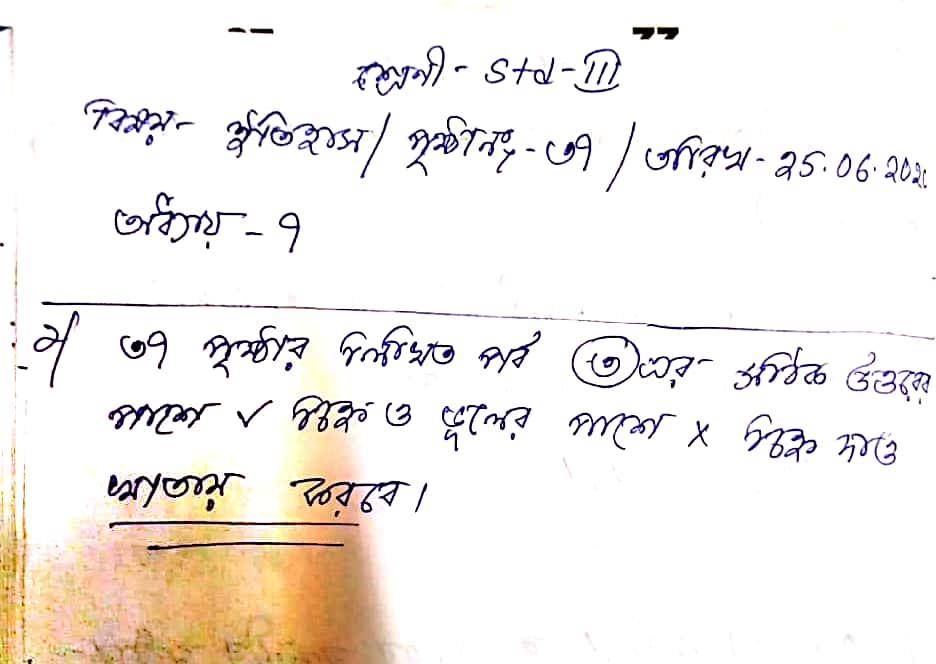 শ্রেনী - Std - III
বিষয় - ইতিহাস / পৃষ্ঠা নং - ৩৭ / তারিখ - ২5.06.২0২
অধ্যায় - ৭
২/ ৩৭ পৃষ্ঠার লিখিত পর্ব ৩ এর সঠিক উত্তরের
পাশে ✓ চিহ্ন ও ভুলের পাশে × চিহ্ন দাও
খাতায় করবে।